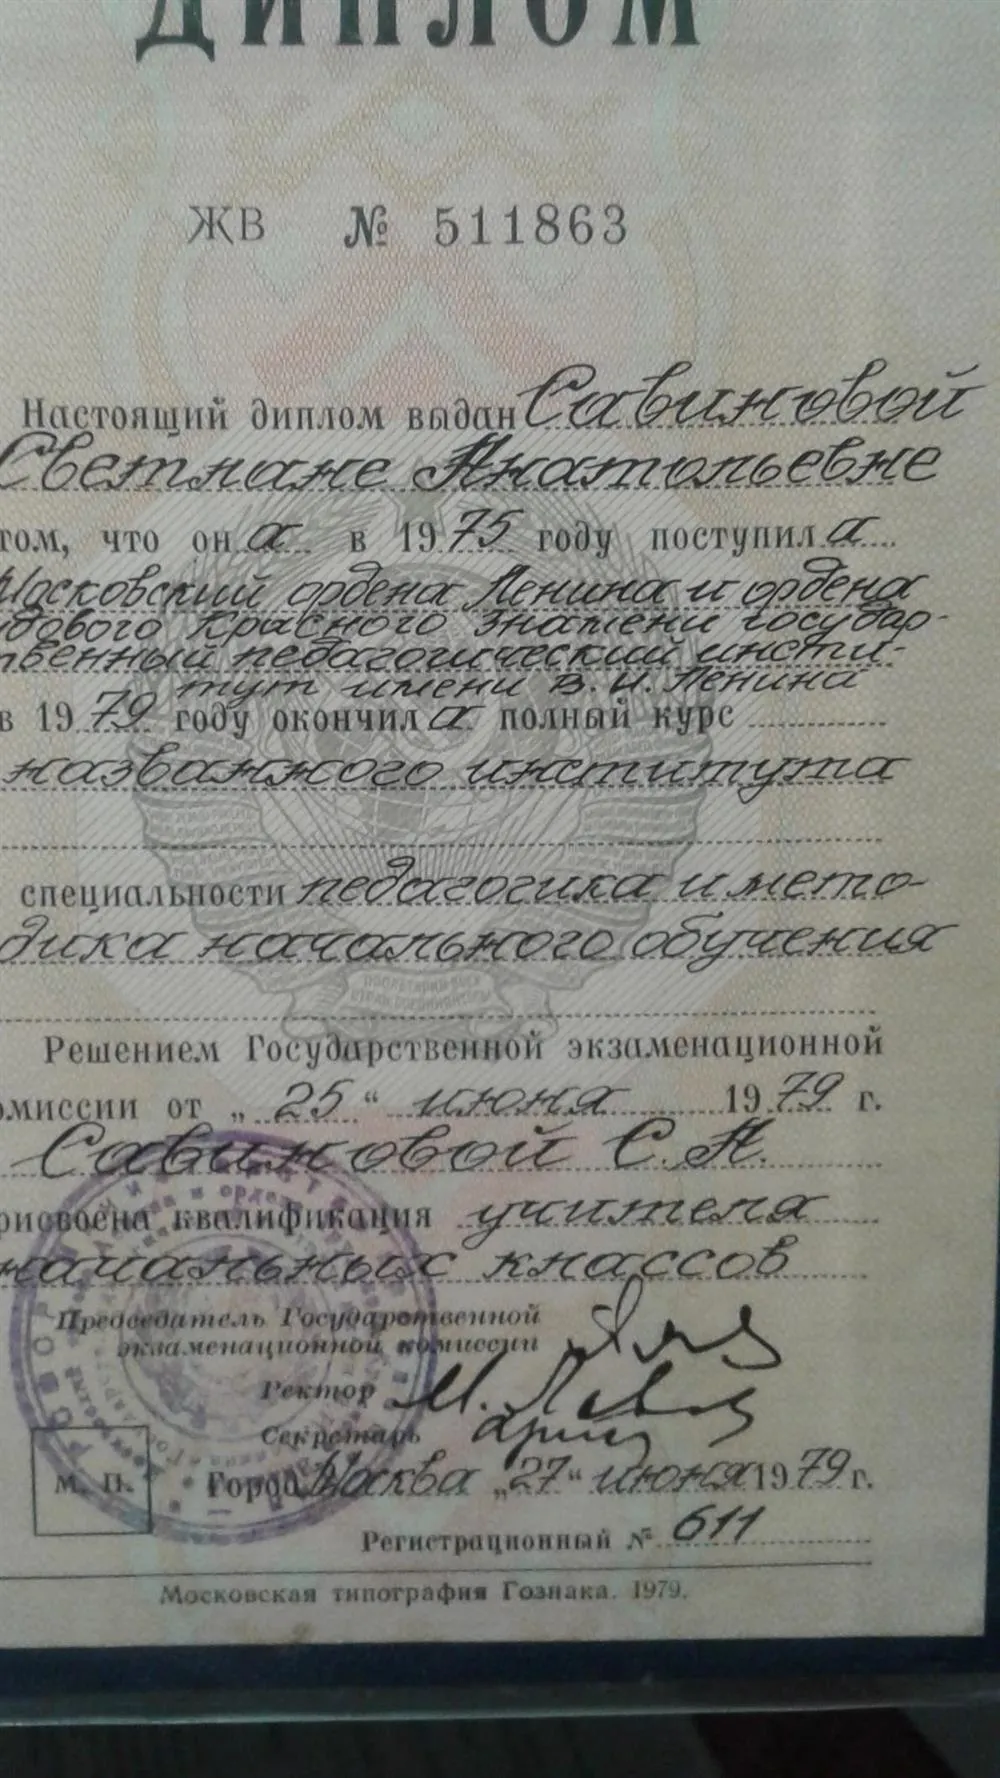 ДИПЛОМ
ЖВ № 511863
Настоящий диплом выдан Савиновой
Светлане Анатольевне
том, что он а в 1975 году поступил а
Московский ордена Ленина и ордена
дового Красного Знамени государ-
твенный педагогический инсти-
тут имени В. И. Ленина
в 1979 году окончил а полный курс
названного института
специальности педагогика и мето-
дика начального обучения
Решением Государственной экзаменационной
омиссии от „25“ июня 1979 г.
Савиновой С. А.
рисвоена квалификация учителя
начальных классов
Председатель Государственной
экзаменационной комиссии
Ректор
Секретарь
М. П. Город Москва „27“ июня 1979 г.
Регистрационный № 611
Московская типография Гознака. 1979.